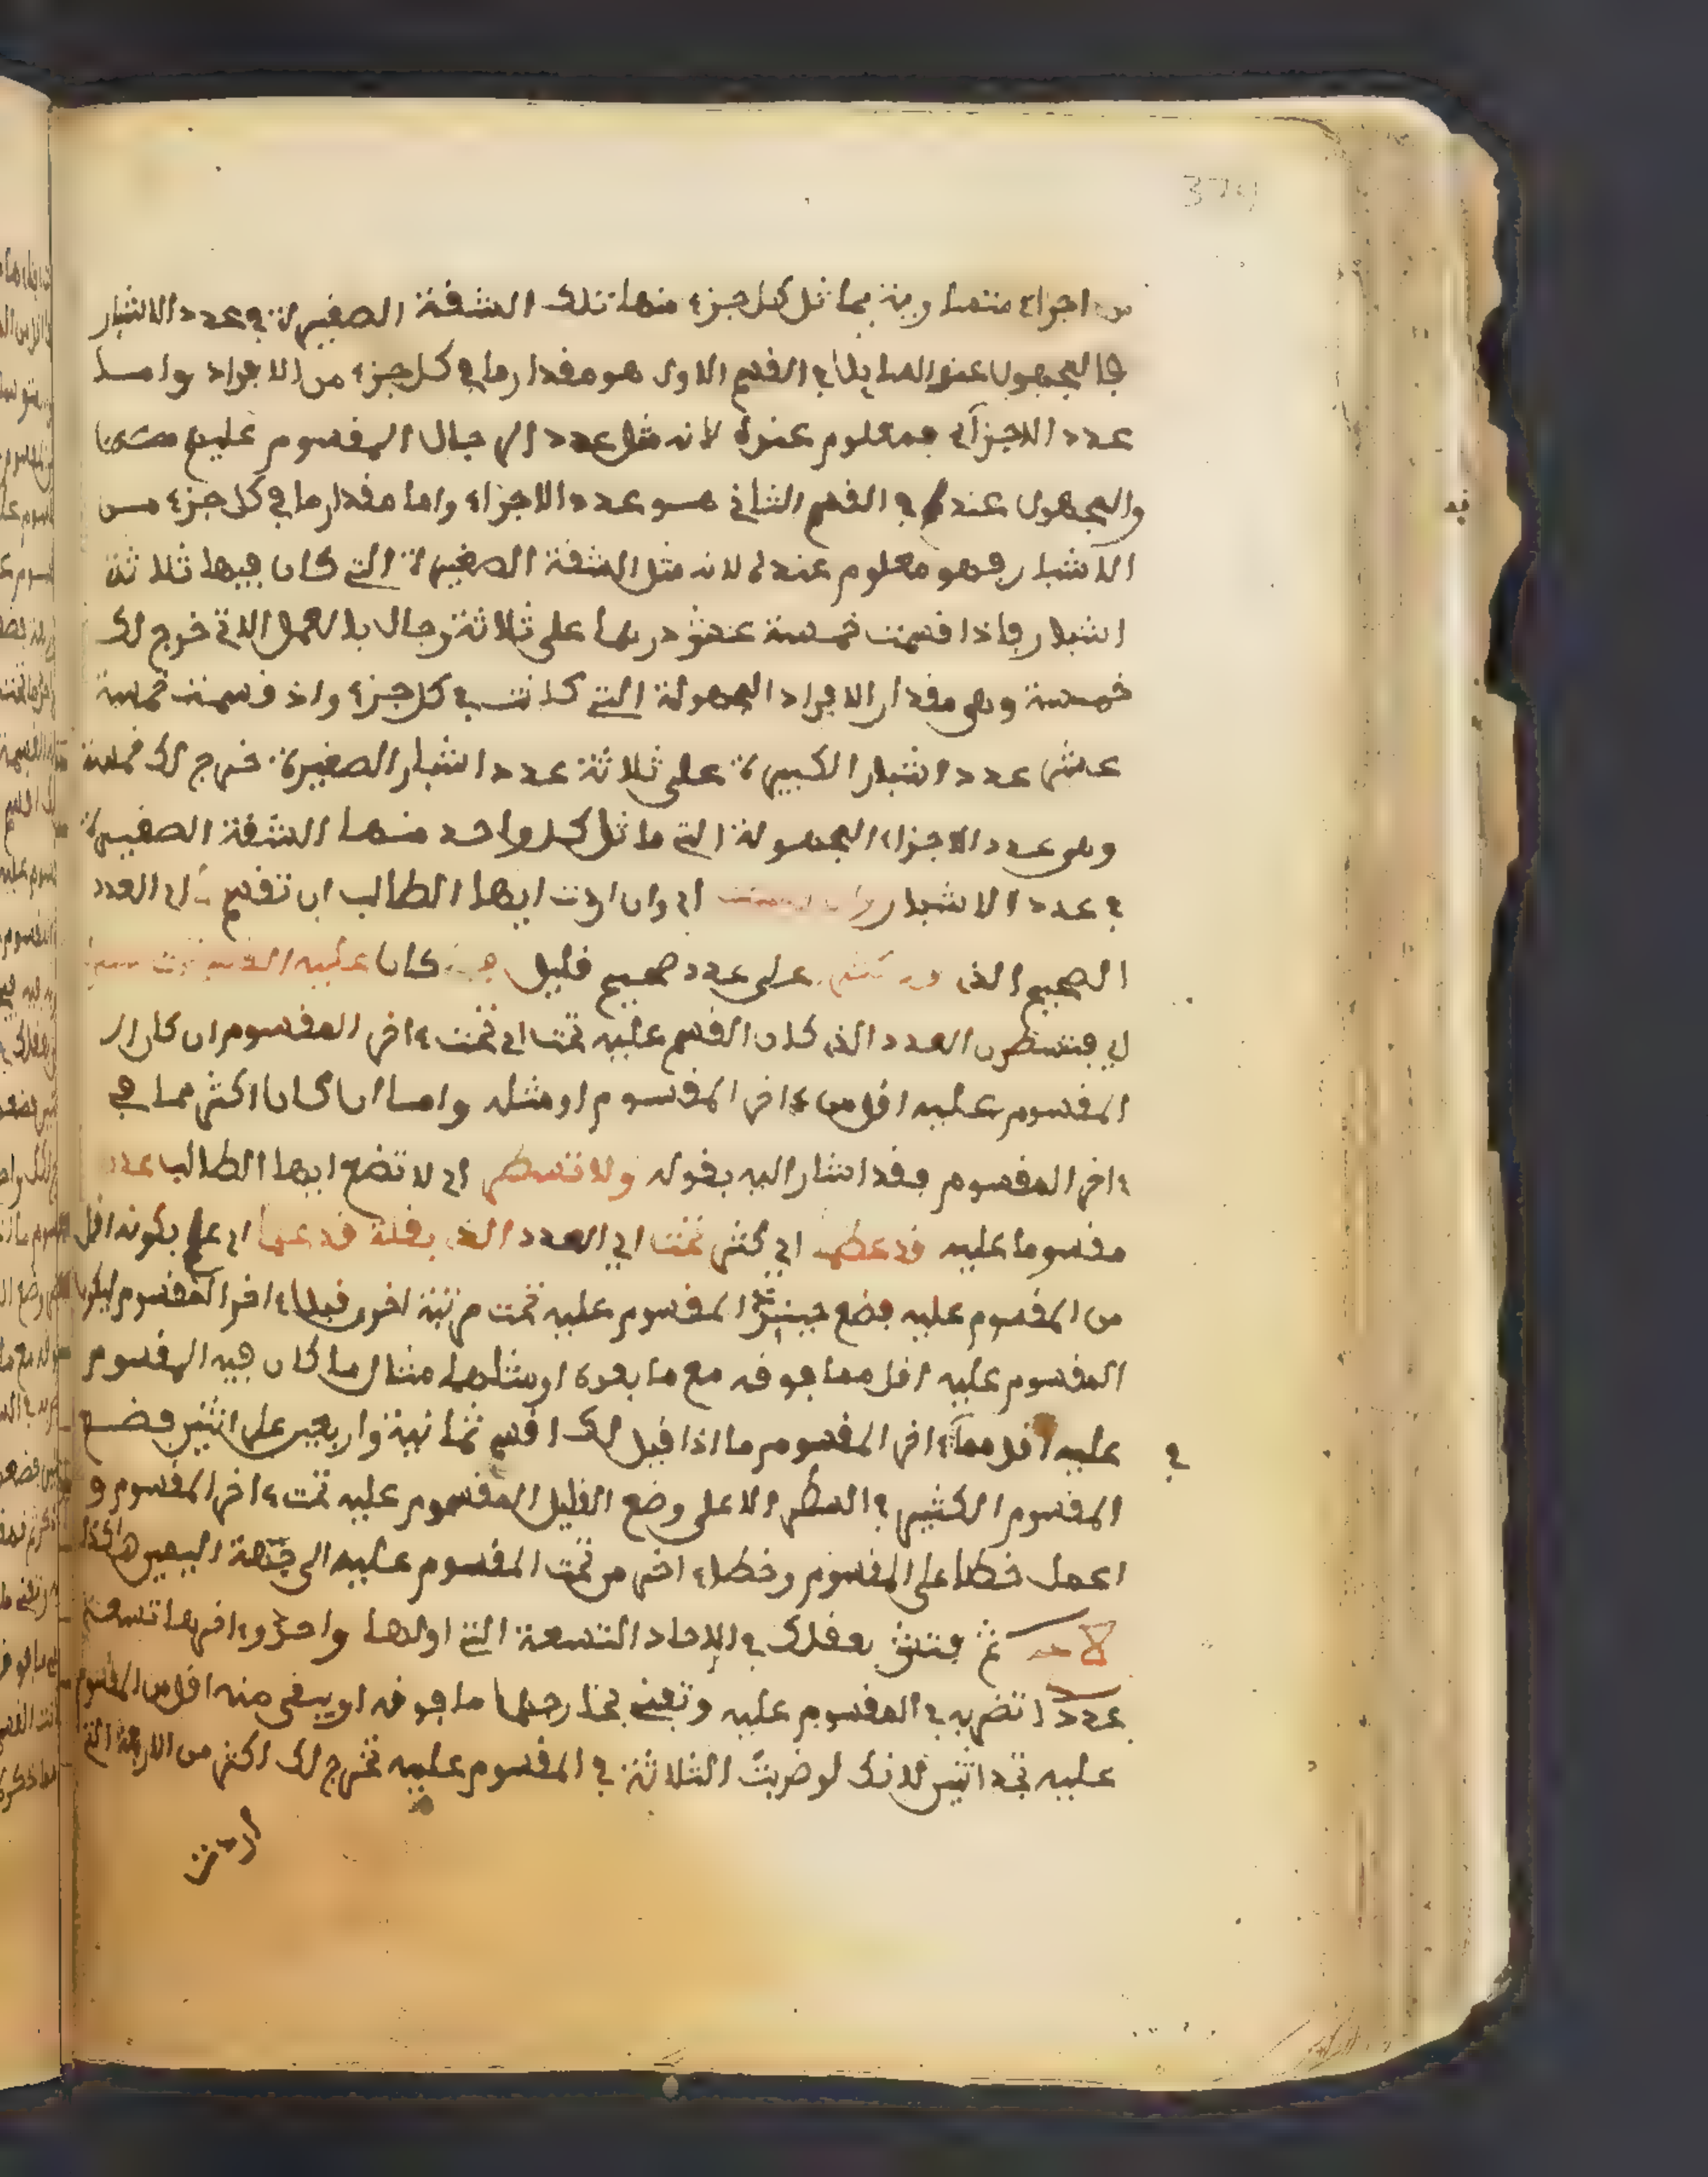 374
من اجزاء متساوية يماثل كل جزء منها تلك الشقة الصغيرة في عدد الاشبار
فالمجهول عند السايل في القسم الاول هو مقدار ما في كل جزء من الافراد واما
عدد الاجزاء فمعلوم عنده لانه مثل عدد الرجال المقسوم عليهم
والمجهول عنده في القسم الثاني هو عدد الاجزاء واما مقدار ما في كل جزء من
الاشبار فهو معلوم عنده لانه مثل الشقة الصغيرة التي كان فيها ثلاثة
اشبار فاذا قسمت خمسة عشر درهما على ثلاثة رجال بالعمل الاتي خرج لك
خمسة وهي مقدار الافراد المجهولة التي كانت في كل جزء واذ قسمت خمسة
عشر عدد اشبار الكبيرة على ثلاثة عدد اشبار الصغيرة خرج لك خمسة
وهي عدد الاجزاء المجهولة التي ماثل كل واحد منها الشقة الصغيرة
في عدد الاشبار اي وان اردت ايها الطالب ان تقسم اي العدد
الصحيح الذي على عدد صحيح قليل كان عليه القسم
اي فتسطر العدد الذي كان القسم عليه تحت اي تحت ءاخر المقسوم ان كان
المقسوم عليه اقل من ءاخر المقسوم او مثله واما ان كان اكثر مما في
ءاخر المقسوم فقد اشار اليه بقوله ولا تسطر اي لا تضع ايها الطالب عدد
مقسوما عليه قد عظم اي كثر تحت اي العدد الذي بقلة قد علما اي علم بكونه اقل
من المقسوم عليه فضع حينئذ المقسوم عليه تحت مرتبة اخرى قبل ءاخر المقسوم ليكون
المقسوم عليه اقل مما فوقه مع ما بعده او مثلهما مثال ما كان فيه المقسوم
عليه اقل مما في ءاخر المقسوم ما اذا قيل لك اقسم ثمانية واربعين على اثنين فضع
المقسوم الكثير في السطر الاعلى وضع القليل المقسوم عليه تحت ءاخر المقسوم و
اعمل خطا على المقسوم وخطا ءاخر من تحت المقسوم عليه الى جهة اليمين هاكذا
ثم فتش بعقلك في الاحاد التسعة التي اولها واحد وءاخرها تسعة
عددا تضربه في المقسوم عليه وتفني بخارجها ما فوقه او يبقى منه اقل من المقسوم
عليه تجد اثنين لانك لو ضربت الثلاثة في المقسوم عليه تخرج لك اكثر من الاربعة التي